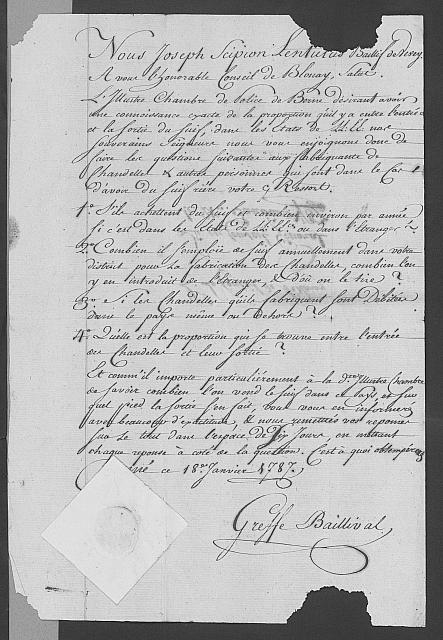 Nous Joseph Scipion Lentulus Baillif de Vevey
A vous l'honorable Conseil de Blonay, Salut.
L'Illustre Chambre de Police de Berne désirant avoir
une connoissance exacte de la proportion qu'il y a entre l'entrée
et la sortie du suif, dans les Etats de LL.EE. nos
souverains Seigneurs nous vous enjoignons donc de
faire les questions suivantes aux fabriquants de
Chandelles & autres personnes qui sont dans le Cas
d'avoir du suif rière votre Ressort.
1.° S'ils achettent du suif et combien environ par année
si c'est dans les Etats de LL.EE. ou dans l'étranger?
2.° Combien il s'emploie de suif annuellement dans votre
district pour la fabrication des Chandelles, combien l'on
y en introduit de l'étranger, & d'où on le tire?
3.° Si les Chandelles qu'ils fabriquent sont Debitées
dans le pays même ou dehors?
4.° Quelle est la proportion qui se trouve entre l'entrée
des Chandelles et leur sortie?
Et comm'il importe particulièrement à la d.te Illustre Chambre
de savoir combien l'on vend le suif dans ce Pays et sur
quel pied la sortie s'en fait, vous vous en informerez
avec beaucoup d'exactitude, & nous remettrés vos réponses
sur le tout dans l'espace de dix Jours, en mettant
chaque réponse à coté de la question. C'est à quoi obtempérerés
ce 18.e Janvier 1787.
Greffe Baillival.